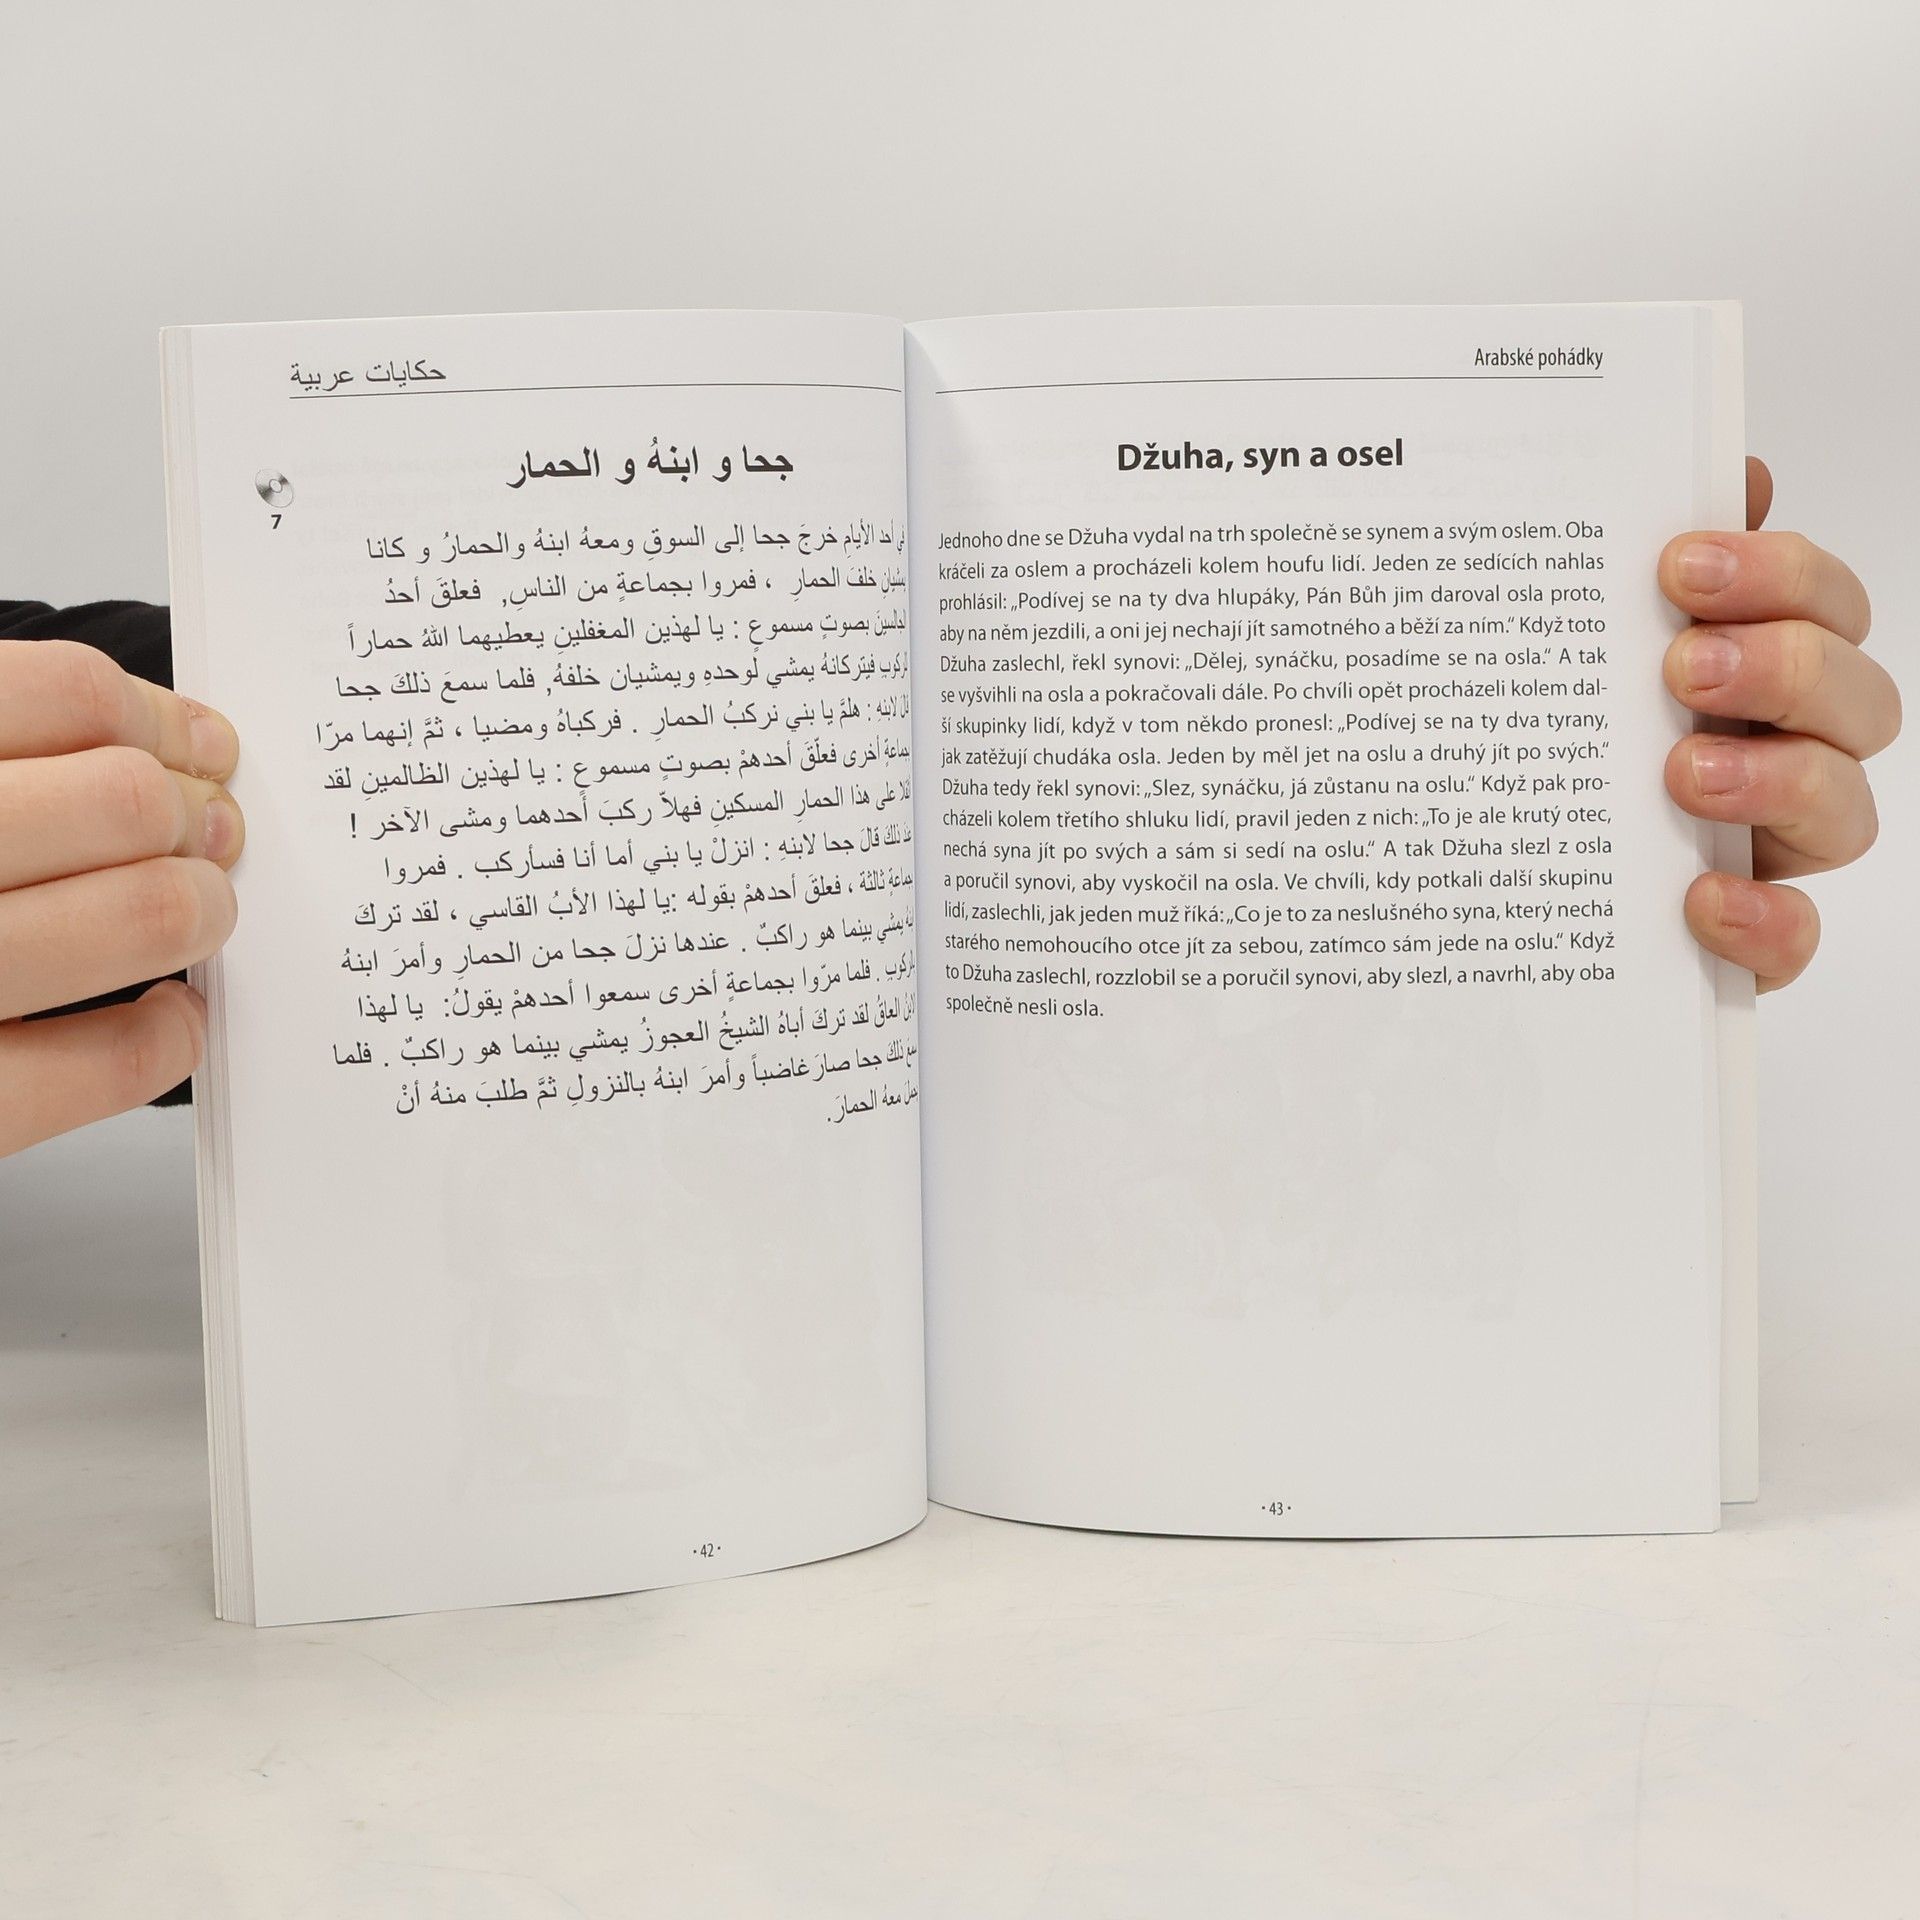 حكايات عربية
جحا و ابنهُ و الحمار
7
في أحد الأيامِ خرجَ جحا إلى السوقِ ومعهُ ابنهُ والحمارُ و كانا
يمشيانِ خلفَ الحمارِ ، فمروا بجماعةٍ من الناسِ, فعلقَ أحدُ
الجالسينَ بصوتٍ مسموعٍ : يا لهذين المغفلينِ يعطيهما اللهُ حماراً
للركوبِ فيتركانهُ يمشي لوحدهِ ويمشيان خلفهُ, فلما سمعَ ذلكَ جحا
قالَ لابنهِ : هلمَّ يا بني نركبُ الحمارِ . فركباهُ ومضيا ، ثمَّ إنهما مرّا
بجماعةٍ أخرى فعلّقَ أحدهمْ بصوتٍ مسموعٍ : يا لهذين الظالمينِ لقد
أثقلا على هذا الحمارِ المسكينِ فهلاّ ركبَ أحدهما ومشى الآخر !
عندَ ذلكَ قالَ جحا لابنهِ : انزلْ يا بني أما أنا فسأركب . فمروا
بجماعةٍ ثالثة ، فعلقَ أحدهمْ بقوله :يا لهذا الأبُ القاسي ، لقد تركَ
ابنهُ يمشي بينما هو راكبٌ . عندها نزلَ جحا من الحمارِ وأمرَ ابنهُ
بالركوبِ . فلما مرّوا بجماعةٍ أخرى سمعوا أحدهمْ يقولُ: يا لهذا
الابنُ العاقُ لقد تركَ أباهُ الشيخُ العجوزُ يمشي بينما هو راكبٌ . فلما
سمعَ ذلكَ جحا صارَ غاضباً وأمرَ ابنهُ بالنزولِ ثمَّ طلبَ منهُ أنْ
يحملَ معهُ الحمارَ.
· 42 ·
Arabské pohádky
Džuha, syn a osel
Jednoho dne se Džuha vydal na trh společně se synem a svým oslem. Oba
kráčeli za oslem a procházeli kolem houfu lidí. Jeden ze sedících nahlas
prohlásil: „Podívej se na ty dva hlupáky, Pán Bůh jim daroval osla proto,
aby na něm jezdili, a oni jej nechají jít samotného a běží za ním.“ Když toto
Džuha zaslechl, řekl synovi: „Dělej, synáčku, posadíme se na osla.“ A tak
se vyšvihli na osla a pokračovali dále. Po chvíli opět procházeli kolem dal-
ší skupinky lidí, když v tom někdo pronesl: „Podívej se na ty dva tyrany,
jak zatěžují chudáka osla. Jeden by měl jet na oslu a druhý jít po svých.“
Džuha tedy řekl synovi: „Slez, synáčku, já zůstanu na oslu.“ Když pak pro-
cházeli kolem třetího shluku lidí, pravil jeden z nich: „To je ale krutý otec,
nechá syna jít po svých a sám si sedí na oslu.“ A tak Džuha slezl z osla
a poručil synovi, aby vyskočil na osla. Ve chvíli, kdy potkali další skupinu
lidí, zaslechli, jak jeden muž říká: „Co je to za neslušného syna, který nechá
starého nemohoucího otce jít za sebou, zatímco sám jede na oslu.“ Když
to Džuha zaslechl, rozzlobil se a poručil synovi, aby slezl, a navrhl, aby oba
společně nesli osla.
· 43 ·